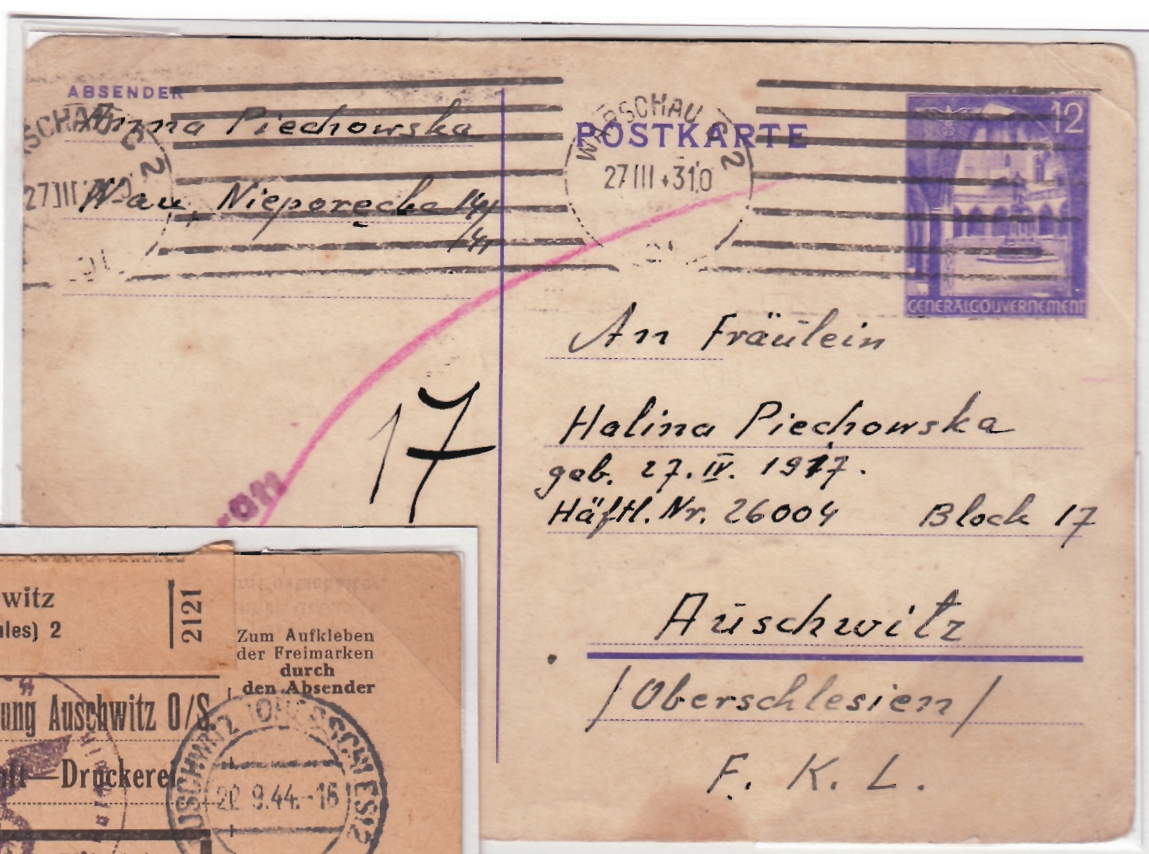 ABSENDER
Piechowska
W-au, Nieporęcka
POSTKARTE
WARSCHAU C 2
27 III 43 10
SCHAU C 2
27 III
12
GENERALGOUVERNEMENT
An Fräulein
Halina Piechowska
geb. 27. IV. 1917.
Häftl. Nr. 26004 Block 17
Auschwitz
/Oberschlesien/
F. K. L.
17
witz
ules) 2
2121
Zum Aufkleben
der Freimarken
durch
den Absender
ung Auschwitz O/S.
Druckerei
AUSCHWITZ (OBERSCHLES) 2
9.44.-16